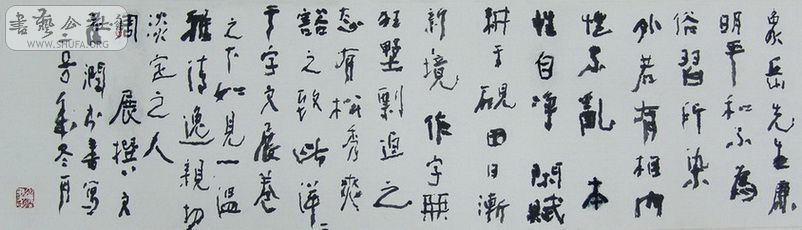 象岳先生廉
明平和不為
俗習所染
外若有相内
性不亂 本
性自净 閑賦
耕于硯田日漸
新境 作字無
狂野剽迫之
态有松秀爽
豁之致 此洋洋
千字文展卷
之下如見一温
雅清逸親切
淡定之人
周 展撰文
潤 书 書寫
年冬月
書艺公社
WWW.SHUFA.ORG